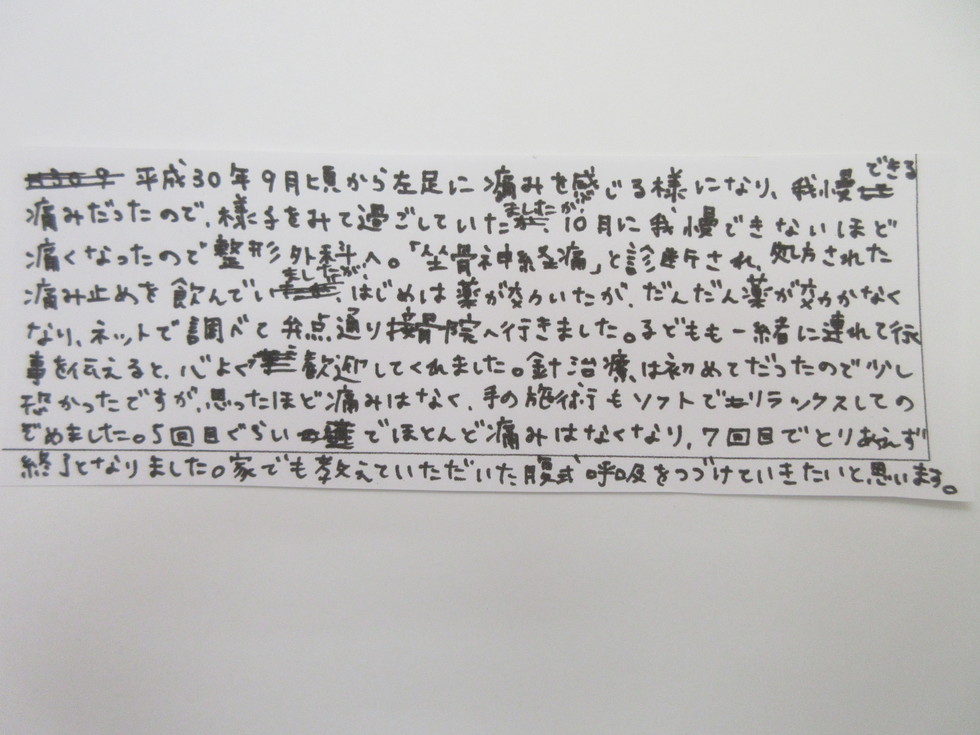 平成30年9月頃から左足に痛みを感じる様になり、我慢できる
痛みだったので、様子をみて過ごしていましたが、10月に我慢できないほど
痛くなったので整形外科へ。「坐骨神経痛」と診断され、処方された
痛み止めを飲んでいましたが、はじめは薬が効いたが、だんだん薬が効かなく
なり、ネットで調べて弁天通り接骨院へ行きました。子どもも一緒に連れて行く
事を伝えると、心よく歓迎してくれました。針治療は初めてだったので少し
恐かったですが、思ったほど痛みはなく、手の施術もソフトでリラックスしての
ぞめました。5回目ぐらいでほとんど痛みはなくなり、7回目でとりあえず
終了となりました。家でも教えていただいた腹式呼吸をつづけていきたいと思います。